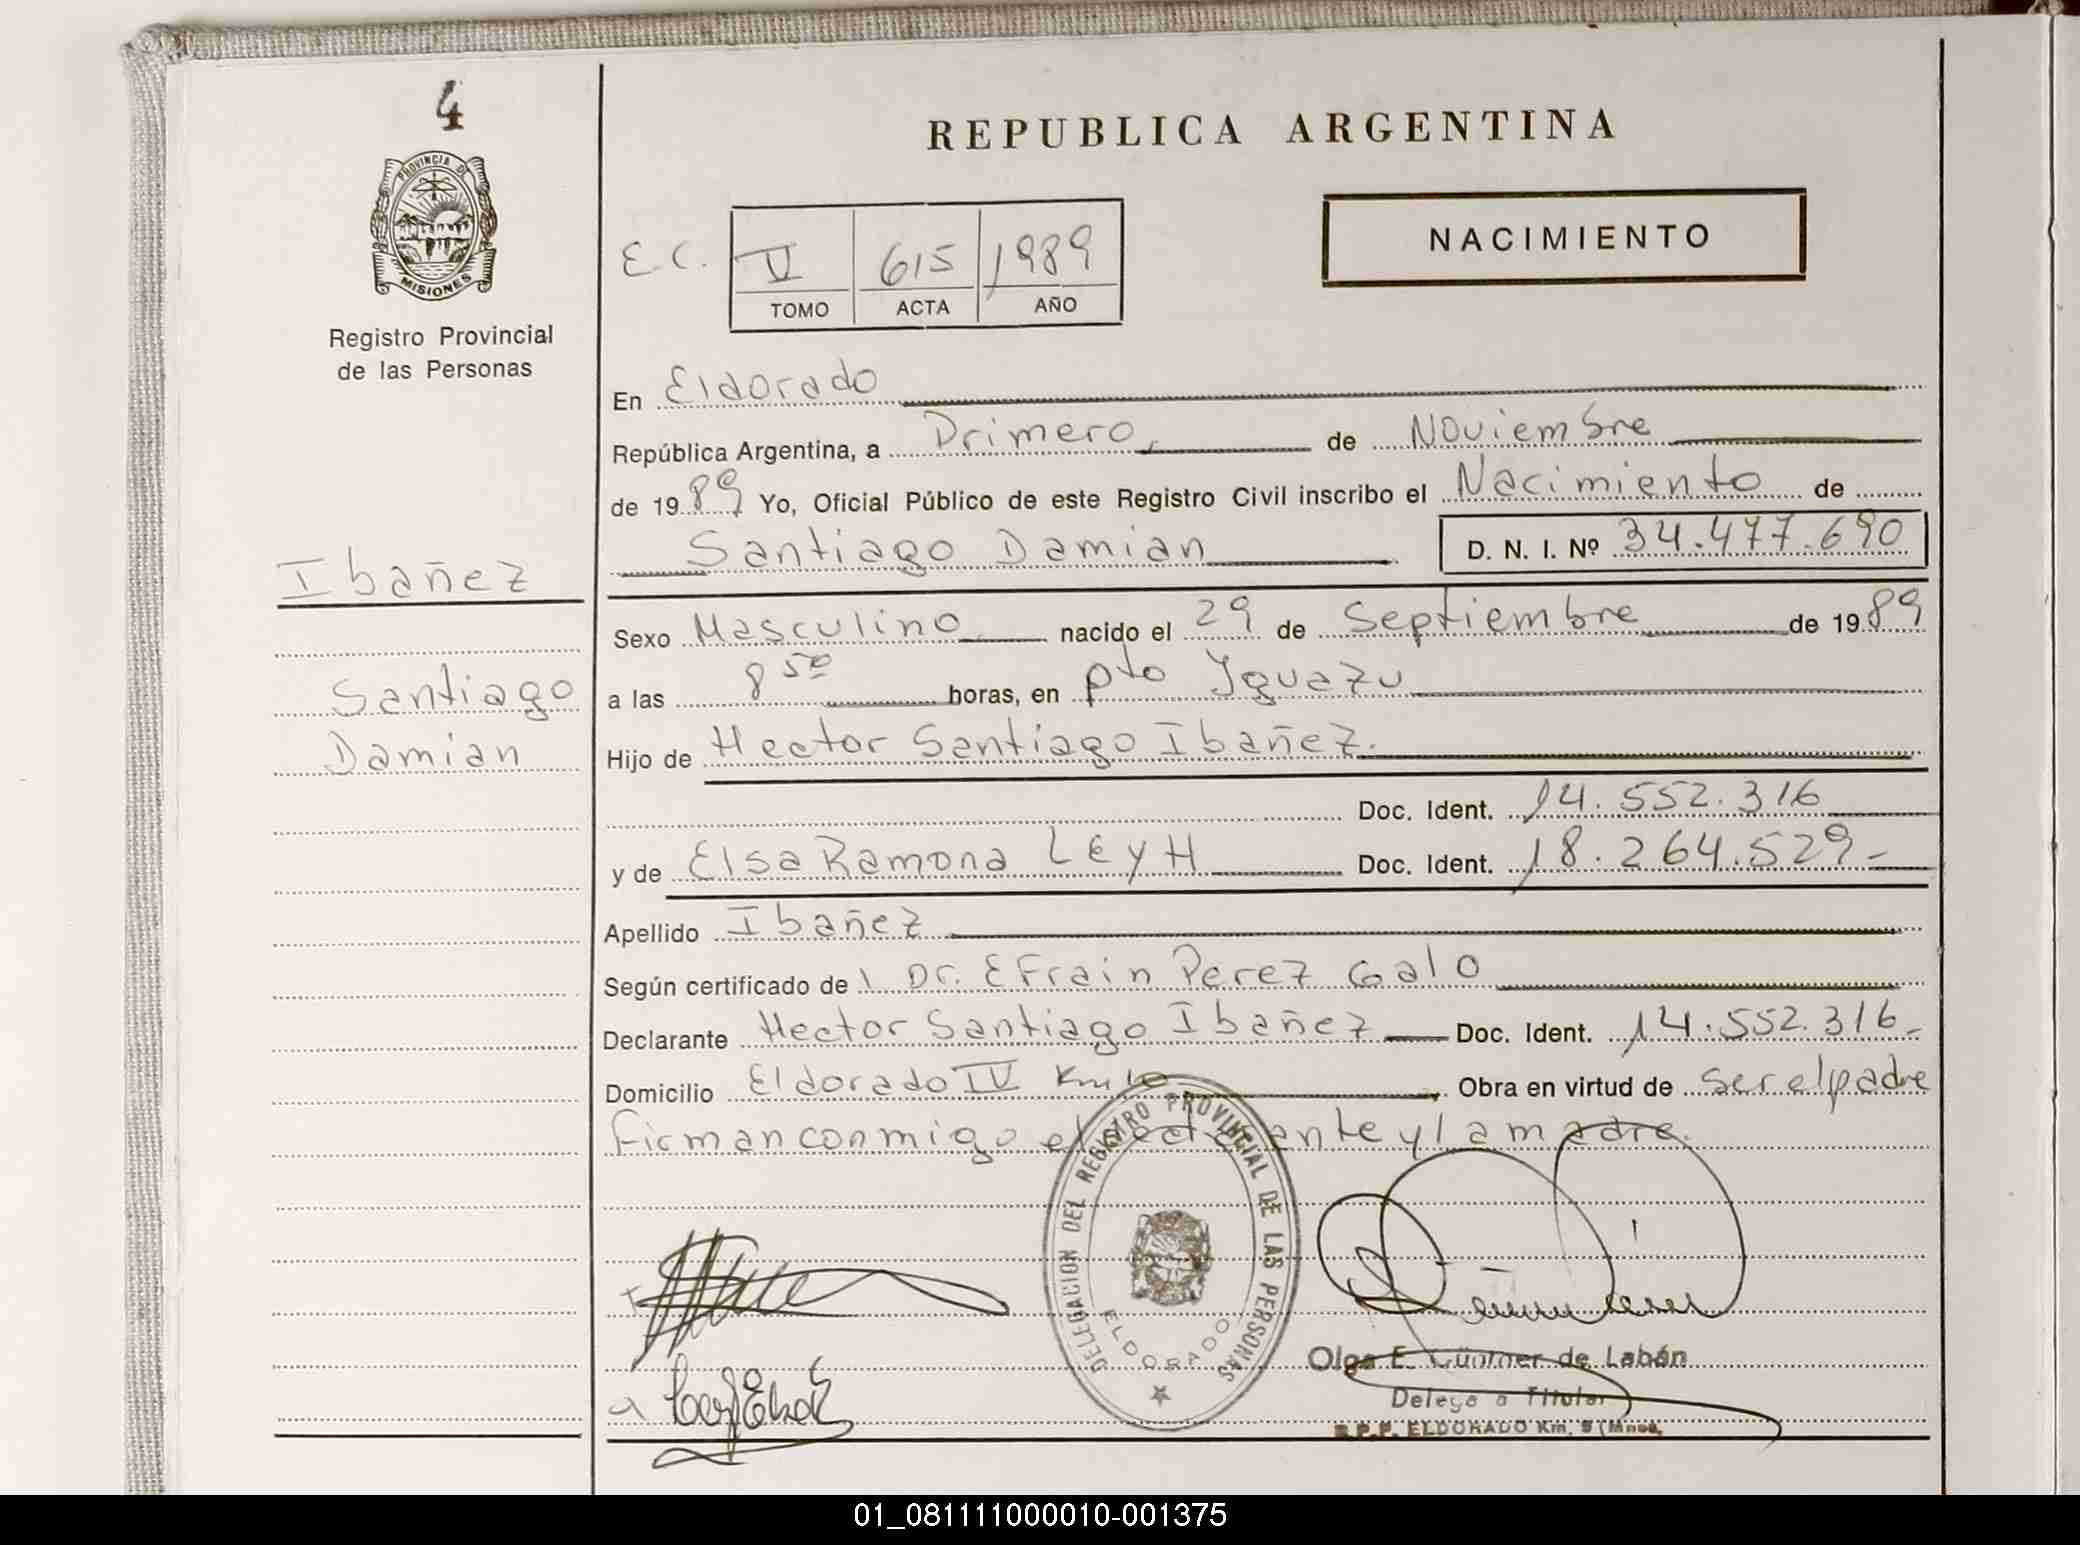 4
REPUBLICA ARGENTINA
PROVINCIA DE
MISIONES
Registro Provincial
de las Personas
E.C. V 615 1989
TOMO ACTA AÑO
NACIMIENTO
En Eldorado
República Argentina, a Primero de Noviembre
de 1989 Yo, Oficial Público de este Registro Civil inscribo el Nacimiento de
Santiago Damian D. N. I. Nº 34.477.690
Ibañez
Sexo Masculino nacido el 29 de Septiembre de 1989
Santiago
a las 8 50 horas, en pto Iguazu
Damian
Hijo de Hector Santiago Ibañez.
Doc. Ident. 14.552.316
y de Elsa Ramona LEYH Doc. Ident. 18.264.529-
Apellido Ibañez
Según certificado de l Dr. Efrain Perez Galo
Declarante Hector Santiago Ibañez Doc. Ident. 14.552.316-
Domicilio Eldorado IV Km 10 Obra en virtud de ser el padre
firman conmigo el declarante y la madre.
DELEGACION DEL REGISTRO PROVINCIAL DE LAS PERSONAS
ELDORADO
Olga E. Güntner de Labán
Delegada Titular
R.P.P. ELDORADO Km. 9 (Mnes.
01_081111000010-001375